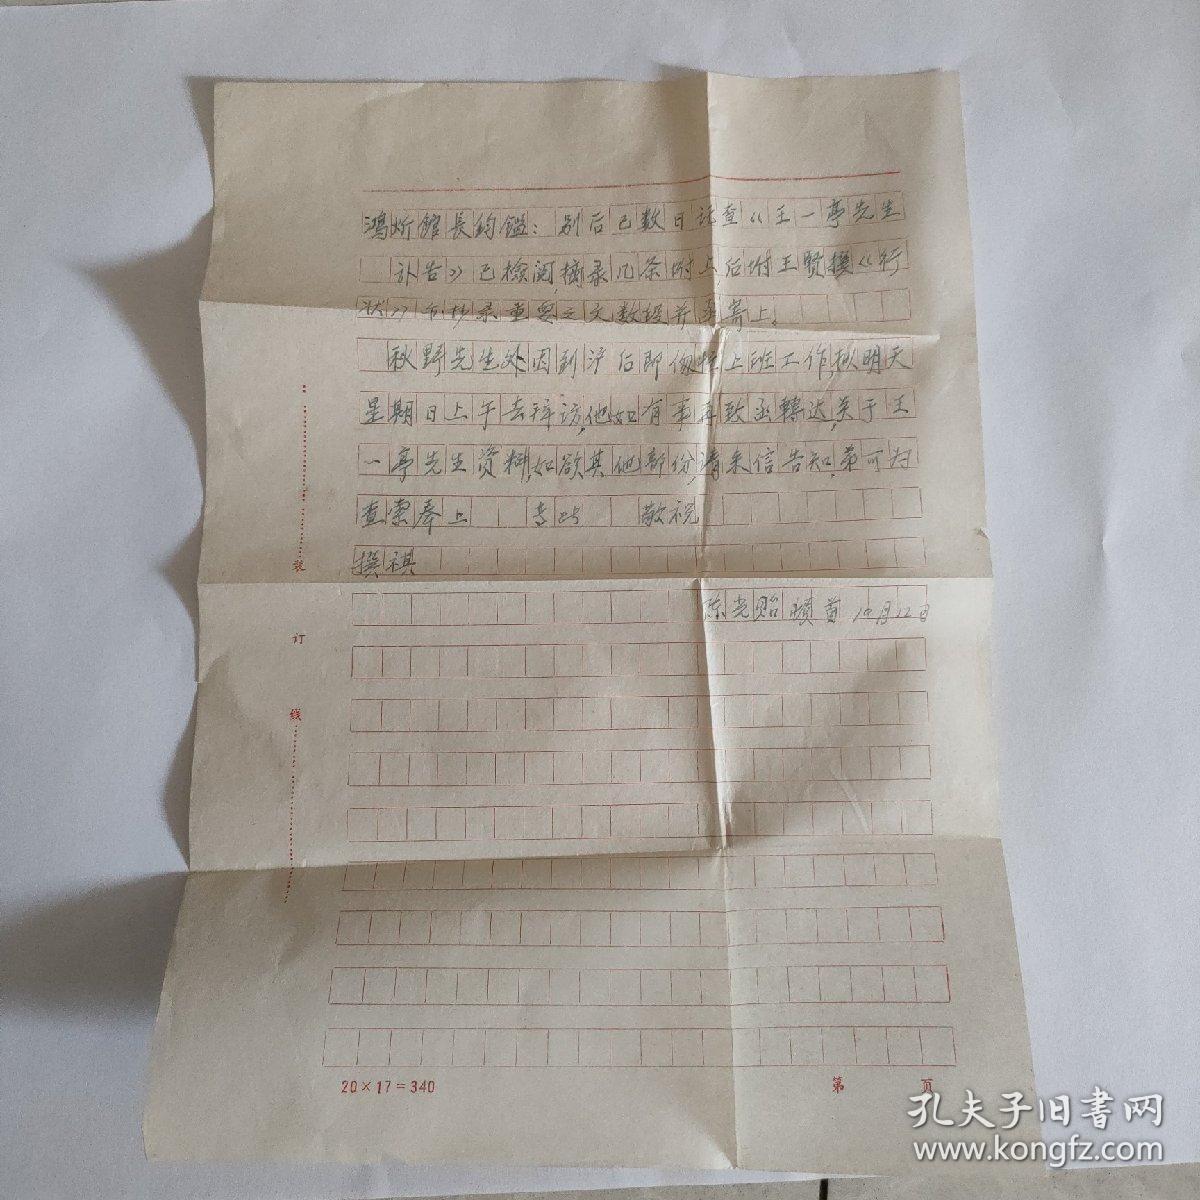 鴻炘館長鈞鑑：别后已数日 查《王一亭先生
訃告》已檢阅，摘录几条附上，后附王賢撰《行
状》 抄录重要之文数段并 寄上。
秋野先生处因到沪后即 忙上班工作，拟明天
星期日上午去拜访，他如有事再致函轉达，关于王
一亭先生资料，如欲其他部份，请来信告知，弟可为
查索奉上 专此 敬祝
撰祺
陈光贻 頓首 10月12日
装
订
线
20×17=340
第 页
孔夫子旧書网
www.kongfz.com